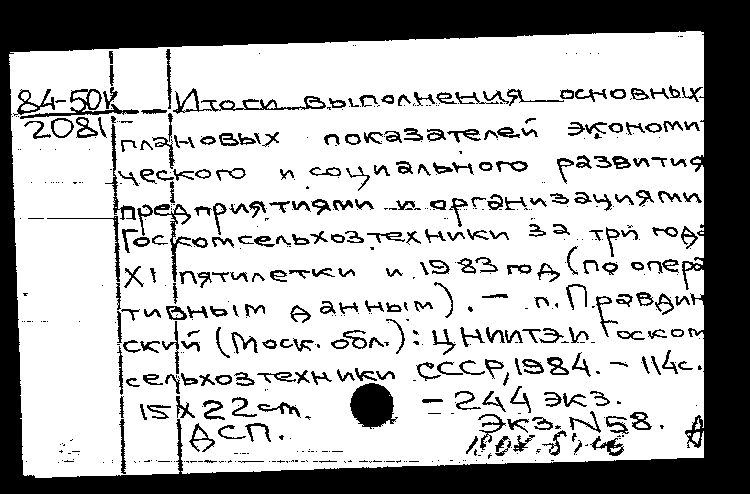 84-50К Итоги выполнения основных
2081 плановых показателей экономи
ческого и социального развития
предприятиями и организациями
Госкомсельхозтехники за три года
XI пятилетки и 1983 год (по опера
тивным данным). – п. Правдин
ский (Моск. обл.): ЦНИИТЭИ Госком
сельхозтехники СССР, 1984. – 114с.
15 X 22 см. – 244 экз.
ДСП. Экз. N 58.